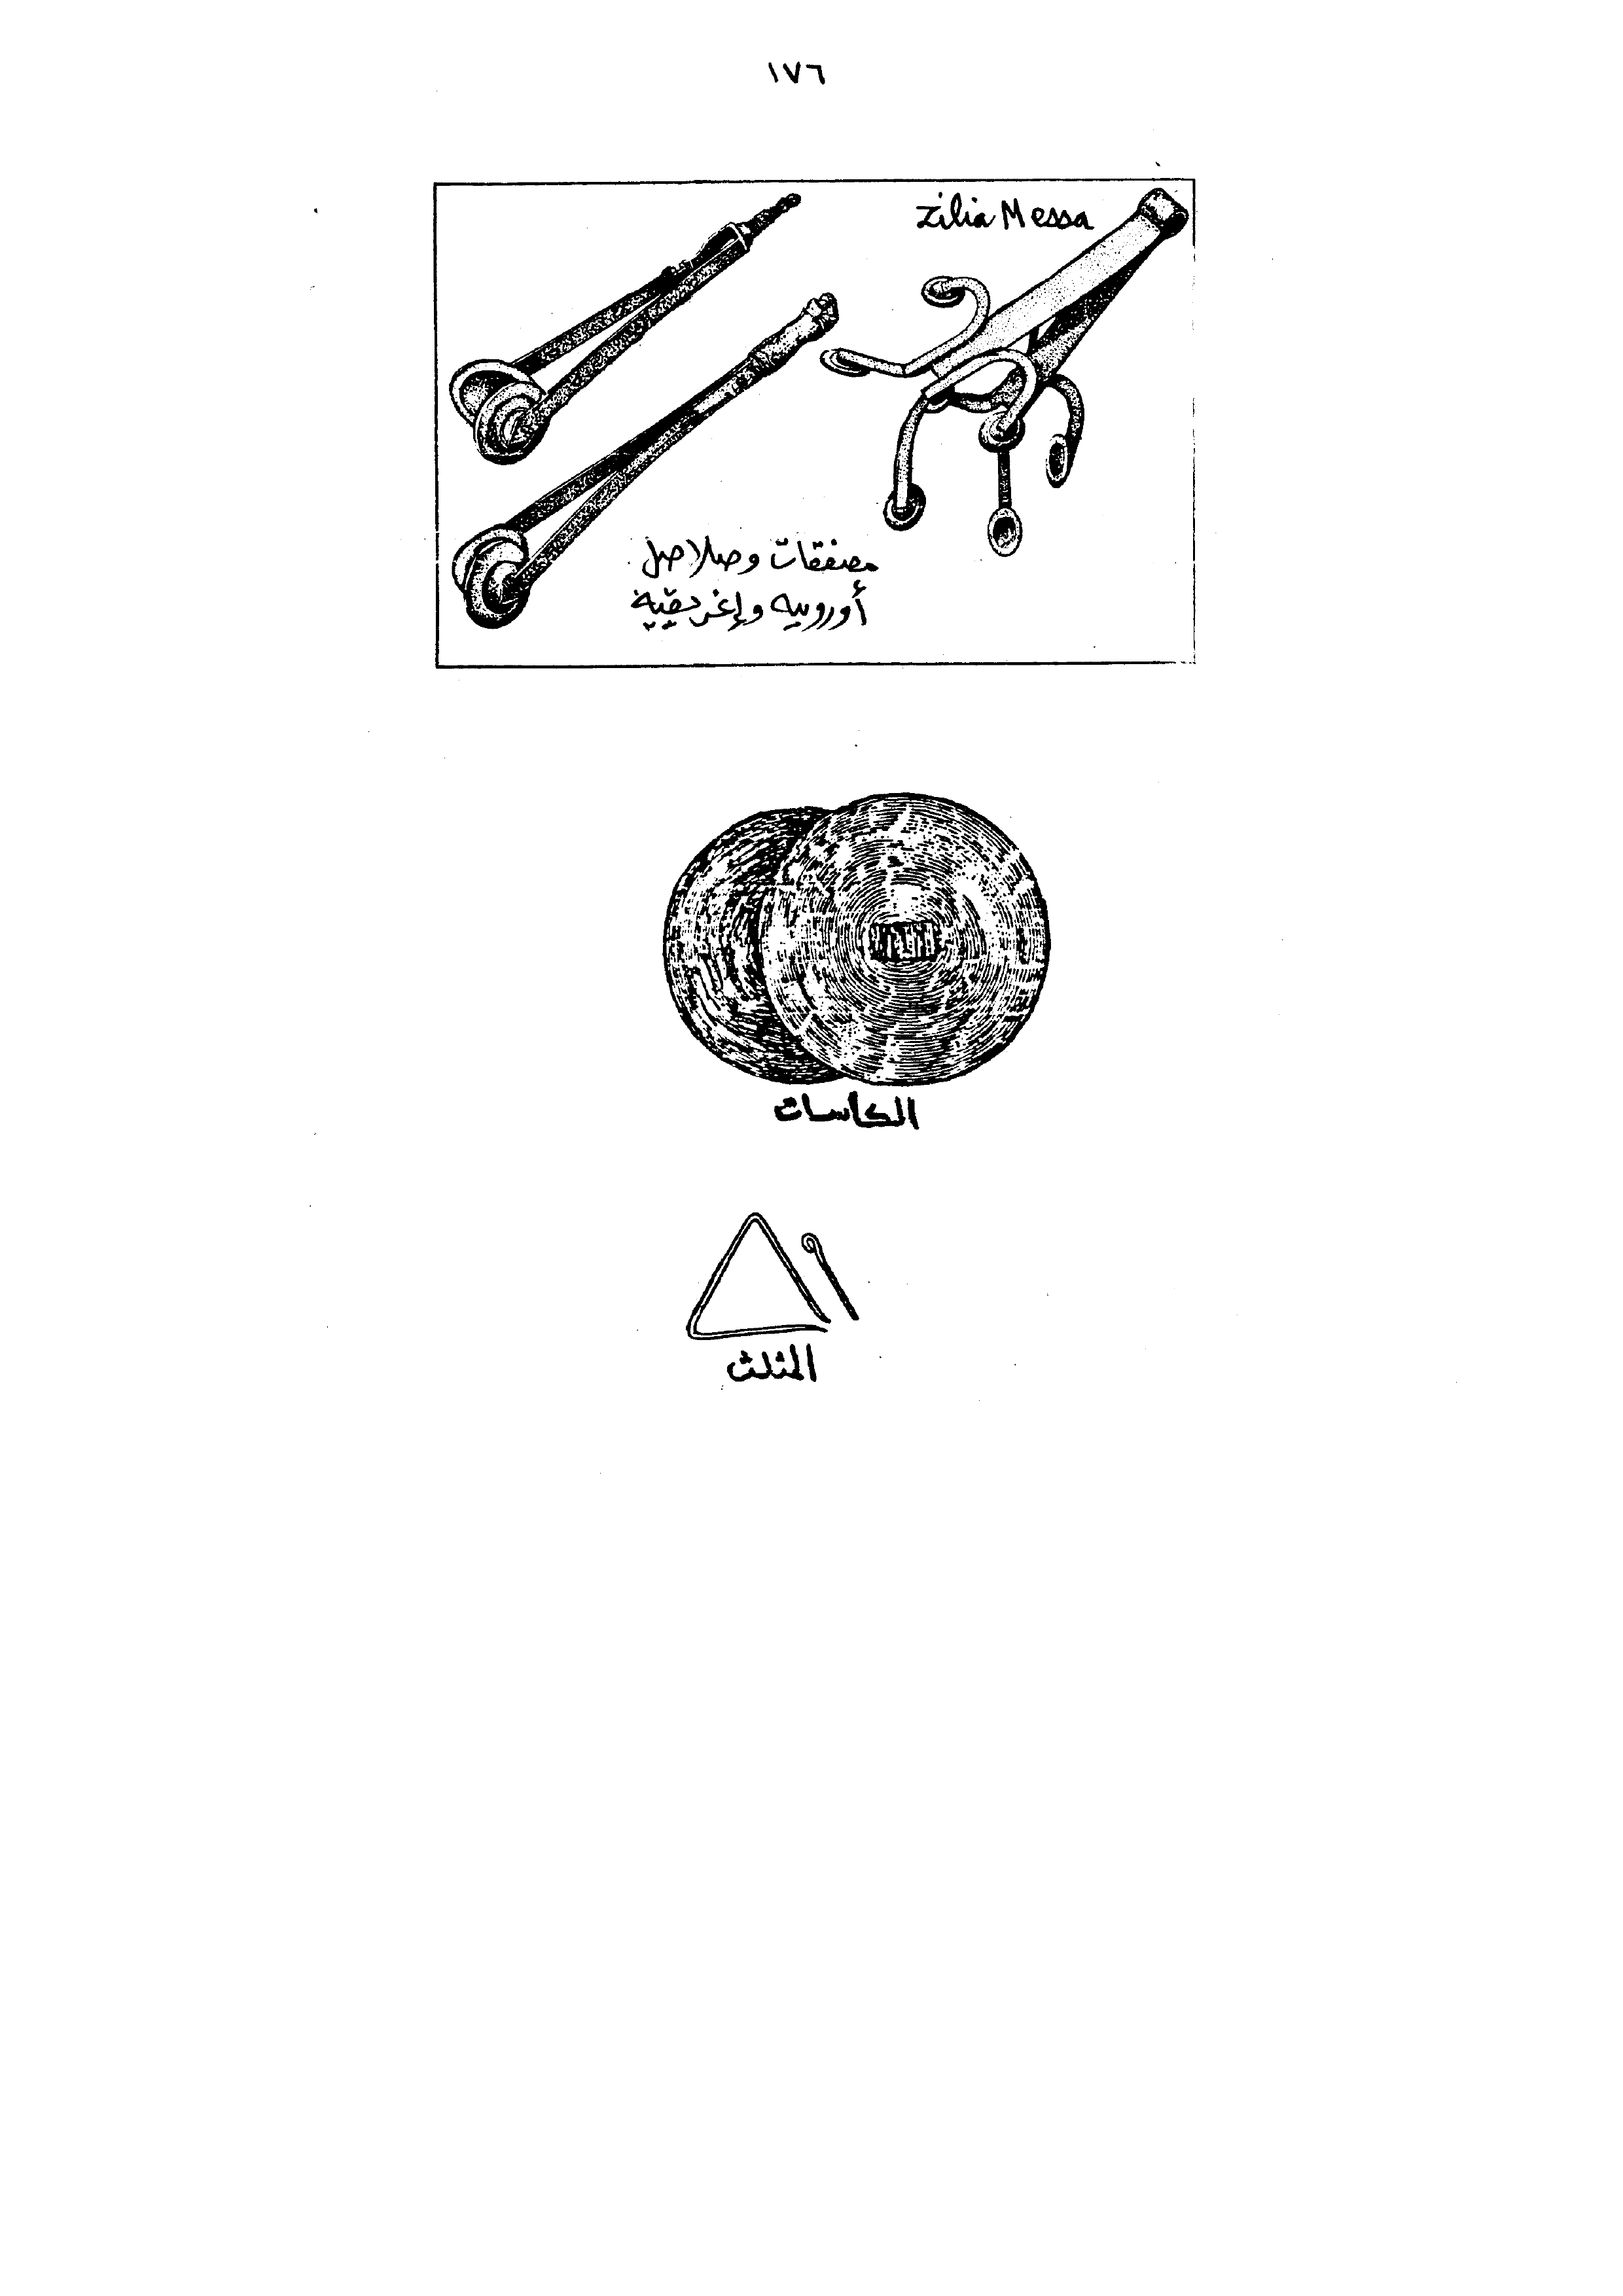 ١٧٦
Zilia Messa
مصفقات وصلاصل
أوروبيه وإغريقية
الكاسات
المثلث